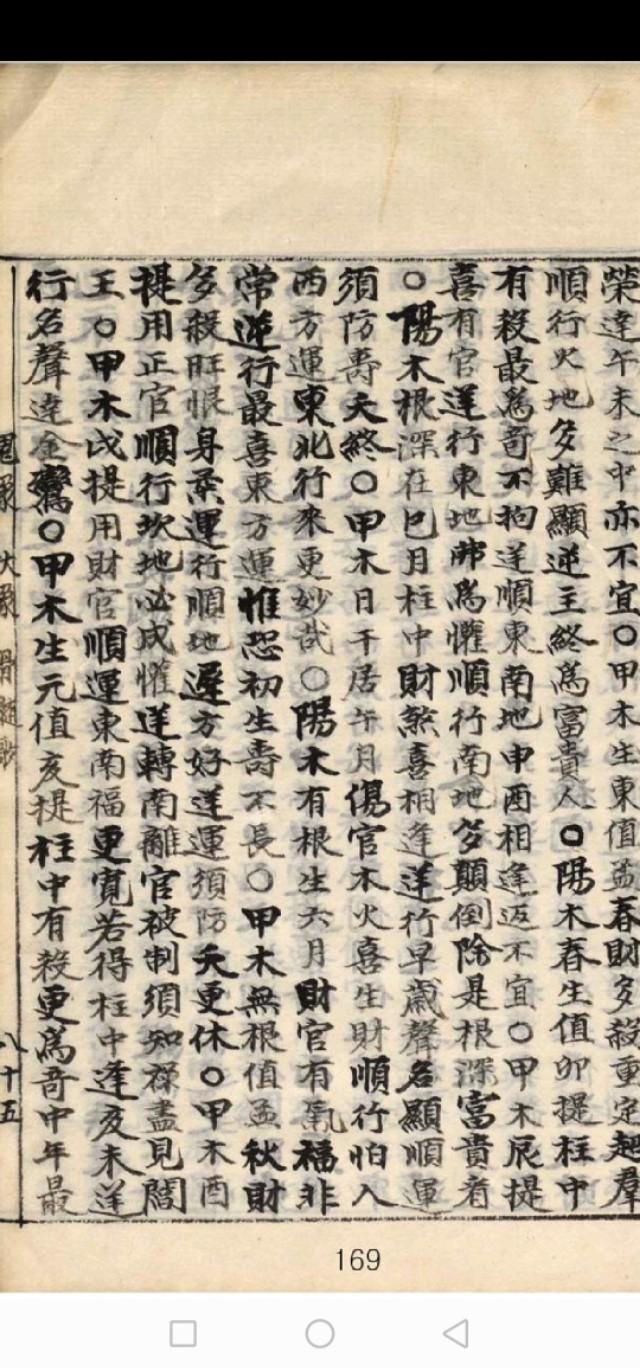 榮達午未之中亦不宜〇甲木生東值孟春財多殺重定越羣
順行火地多難顯逆王終爲富貴人〇陽木春生值卯提柱中
有殺最爲奇不拘逆順東南地申酉相逢返不宜〇甲木辰提
喜有官逆行東地弗爲懽順行南地多顛倒除是根深富貴者
〇陽木根深在巳月柱中財煞喜相逢逆行早歲聲名顯順運
須防壽夭終〇甲木日干居午月傷官木火喜生財順行怕入
西方運東北行來更妙哉〇陽木有根生六月財官有氣福非
常逆行最喜東方運惟恐初生壽不長〇甲木無根值孟秋財
多殺旺恨身柔運行順地遲方好逆運須防夭更休〇甲木酉
提用正官順行坎地必成懽逆轉南離官被制須知祿盡見閻
王〇甲木戌提用財官順運東南福更寬若得柱中逢亥未逆
行名聲達金鸞〇甲木生元值亥提柱中有殺更爲奇中年最
八十五
169